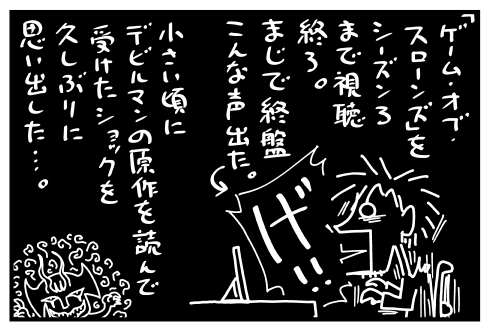 「ゲーム・オブ・
スローンズ」を
シーズン3
まで視聴
終る。
まじで終盤
こんな声出た。
げ!!
小さい頃に
デビルマンの原作を読んで
受けたショックを
久しぶりに
思い出した…。